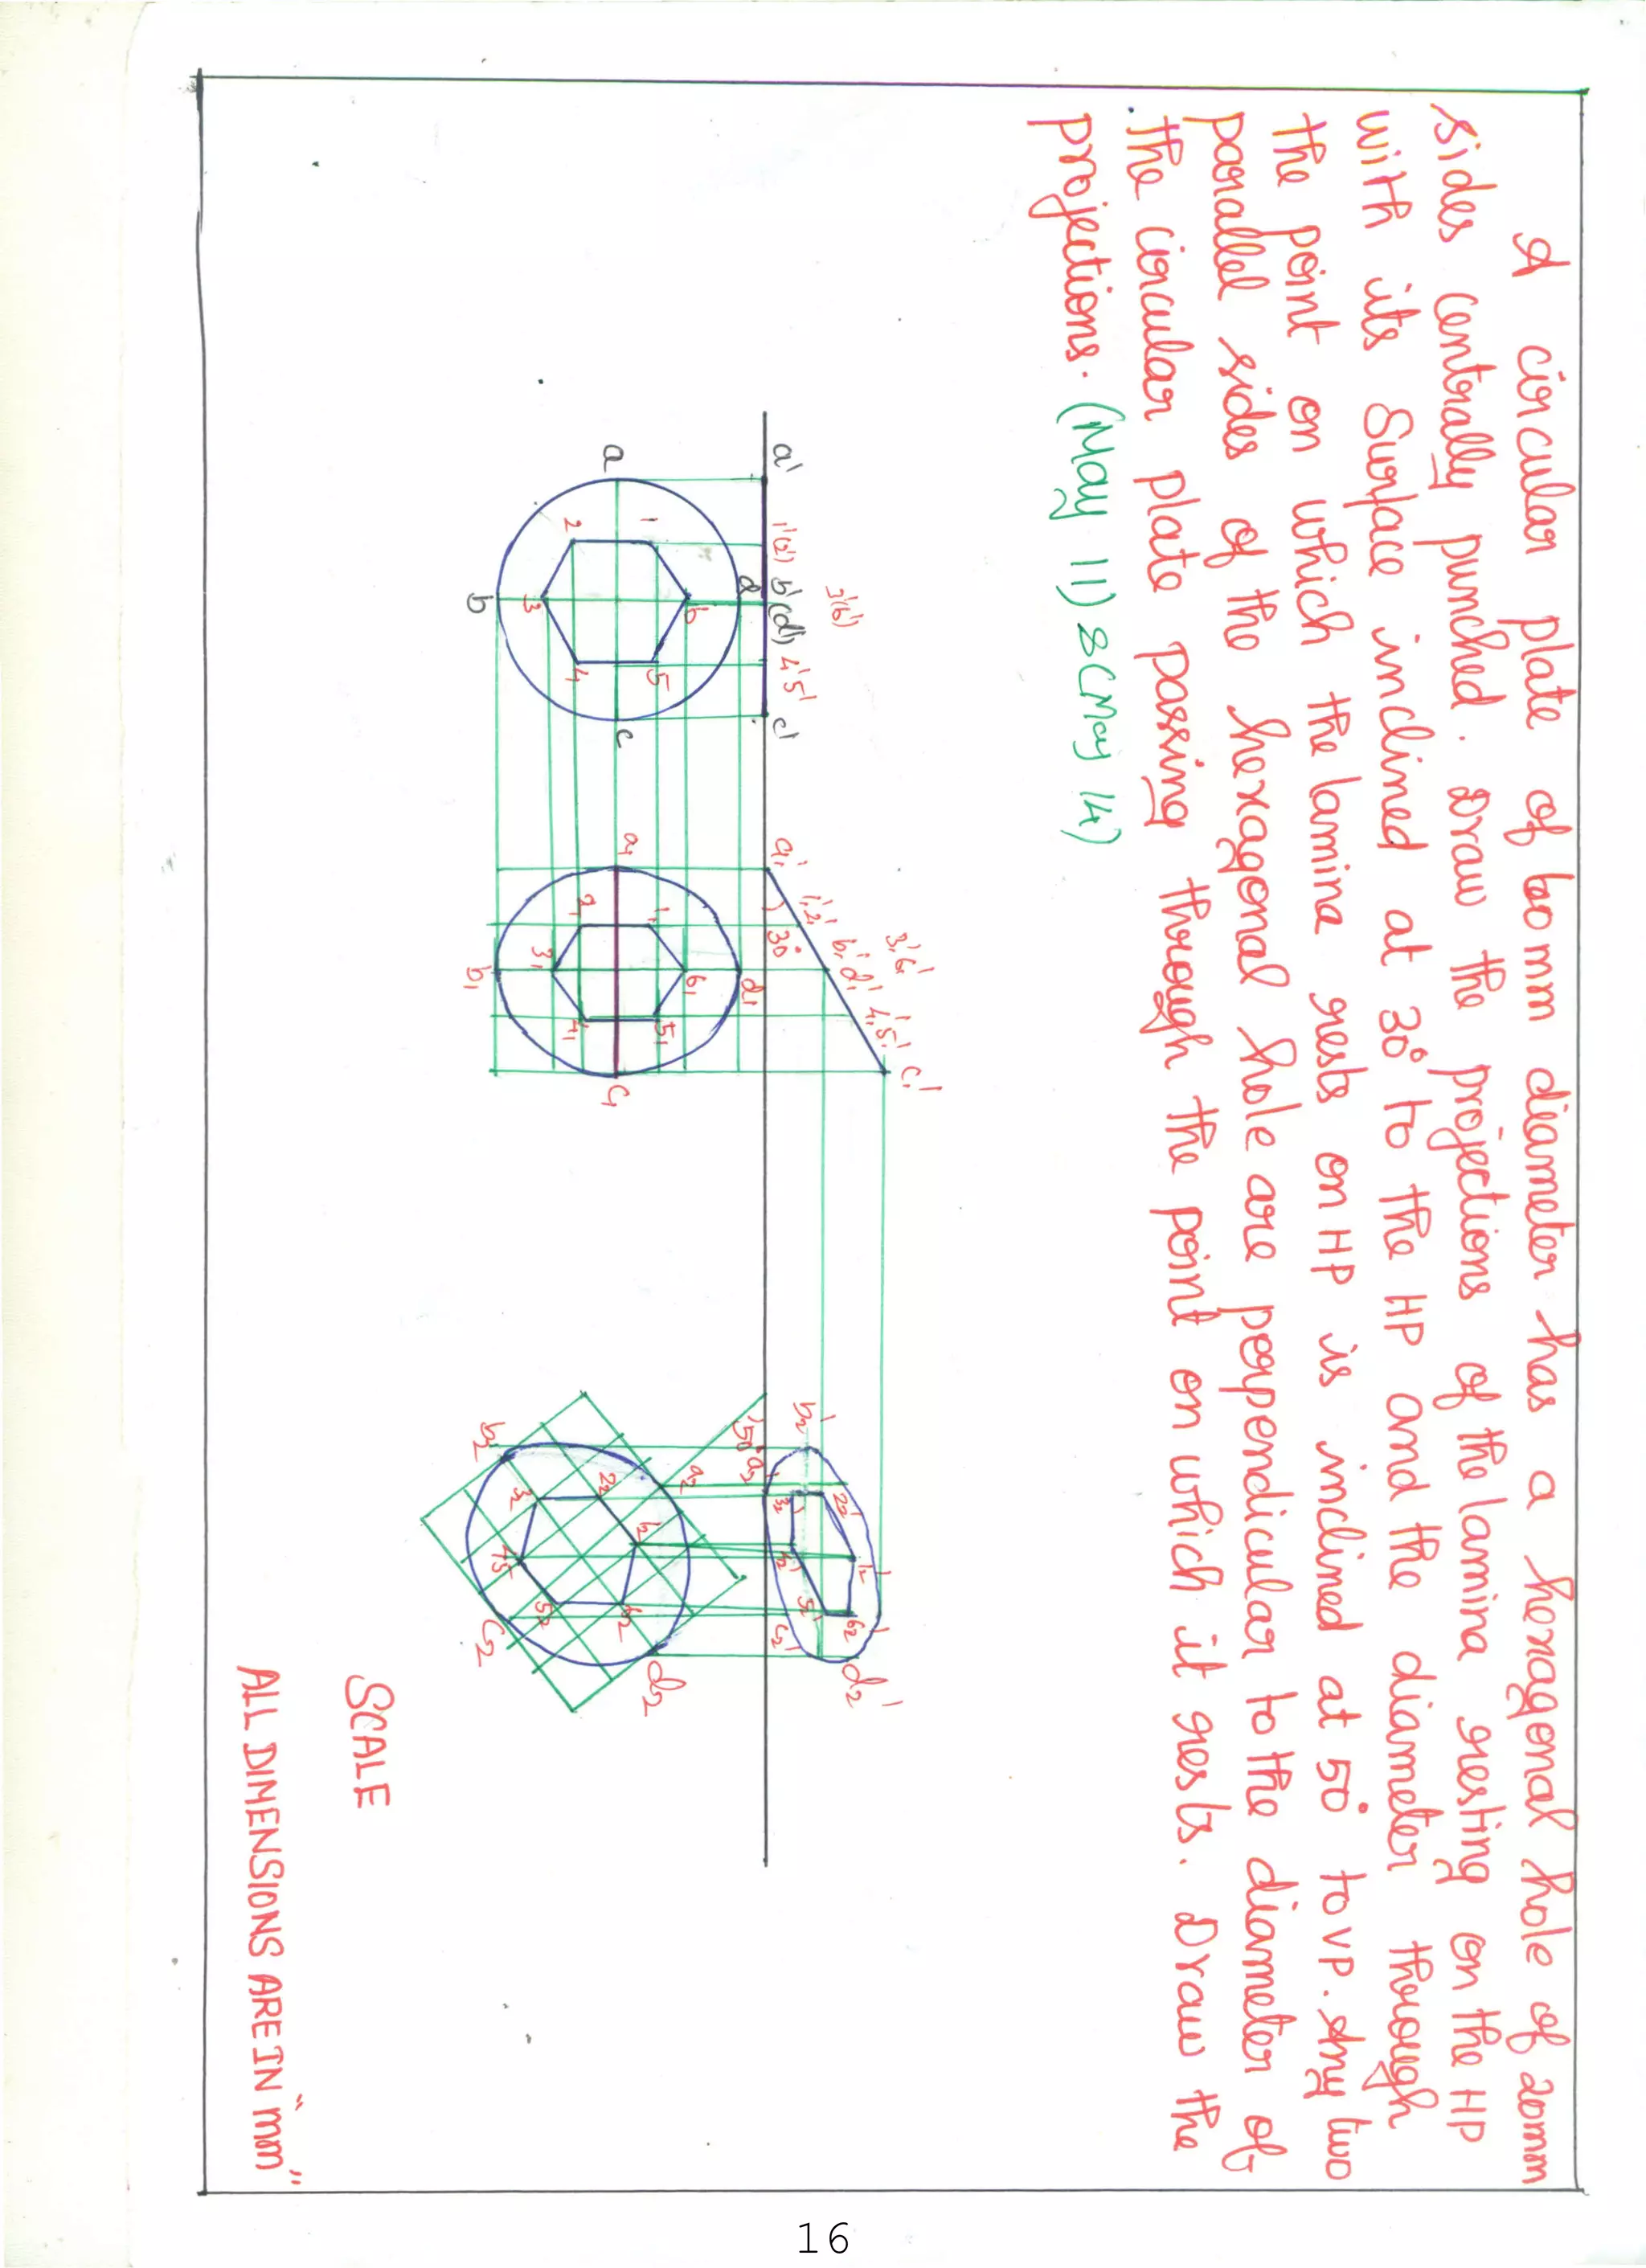 A circular plate of 60mm diameter has a hexagonal hole of 20mm
sides centrally punched. Draw the projections of the lamina resting on the HP
with its Surface inclined at 30° to the HP and the diameter through
the point on which the lamina rests on HP is inclined at 50° to VP. Any two
parallel sides of the hexagonal hole are perpendicular to the diameter of
the circular plate passing through the point on which it rests. Draw the
projections. (May 11) & (May 14)
3'(6')
a' 1'(2') b'(d') 4'5' c'
a d 1 2 6 3 5 4 b c
3,'6,'
a,' 1,'2,' b,'d,' 4,'5,' c,'
30°
a1 1, 21 6, d1 3, 5, 41 b1 c1
b2' 22' 12' 62' d2' 32' 5' c2'
50° a2'
a2 b2 22 32 62 52 c2 d2
SCALE
ALL DIMENSIONS ARE IN "mm"
16